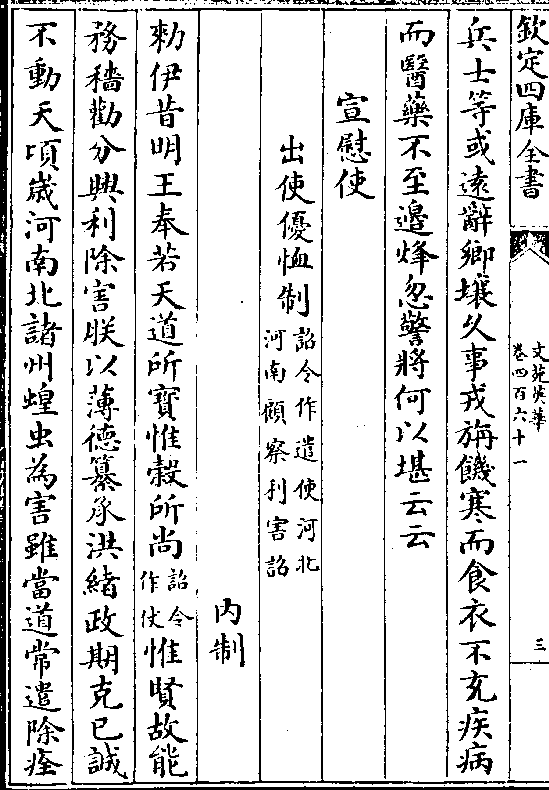 欽定四庫全書
文苑英華
卷四百六十一
三
兵士等或遠辭鄉壤久事戎旃饑寒而食衣不充疾病
而醫藥不至邊烽忽警將何以堪云云
宣慰使
出使優恤制詔令作遣使河北
河南顧察利害詔
內制
勑伊昔明王奉若天道所寳惟榖所尚詔令
作伏惟賢故能
務穡勸分興利除害朕以薄德纂承洪緒政期克已誠
不動天頃嵗河南北諸州蝗虫為害雖當道常遣除瘗